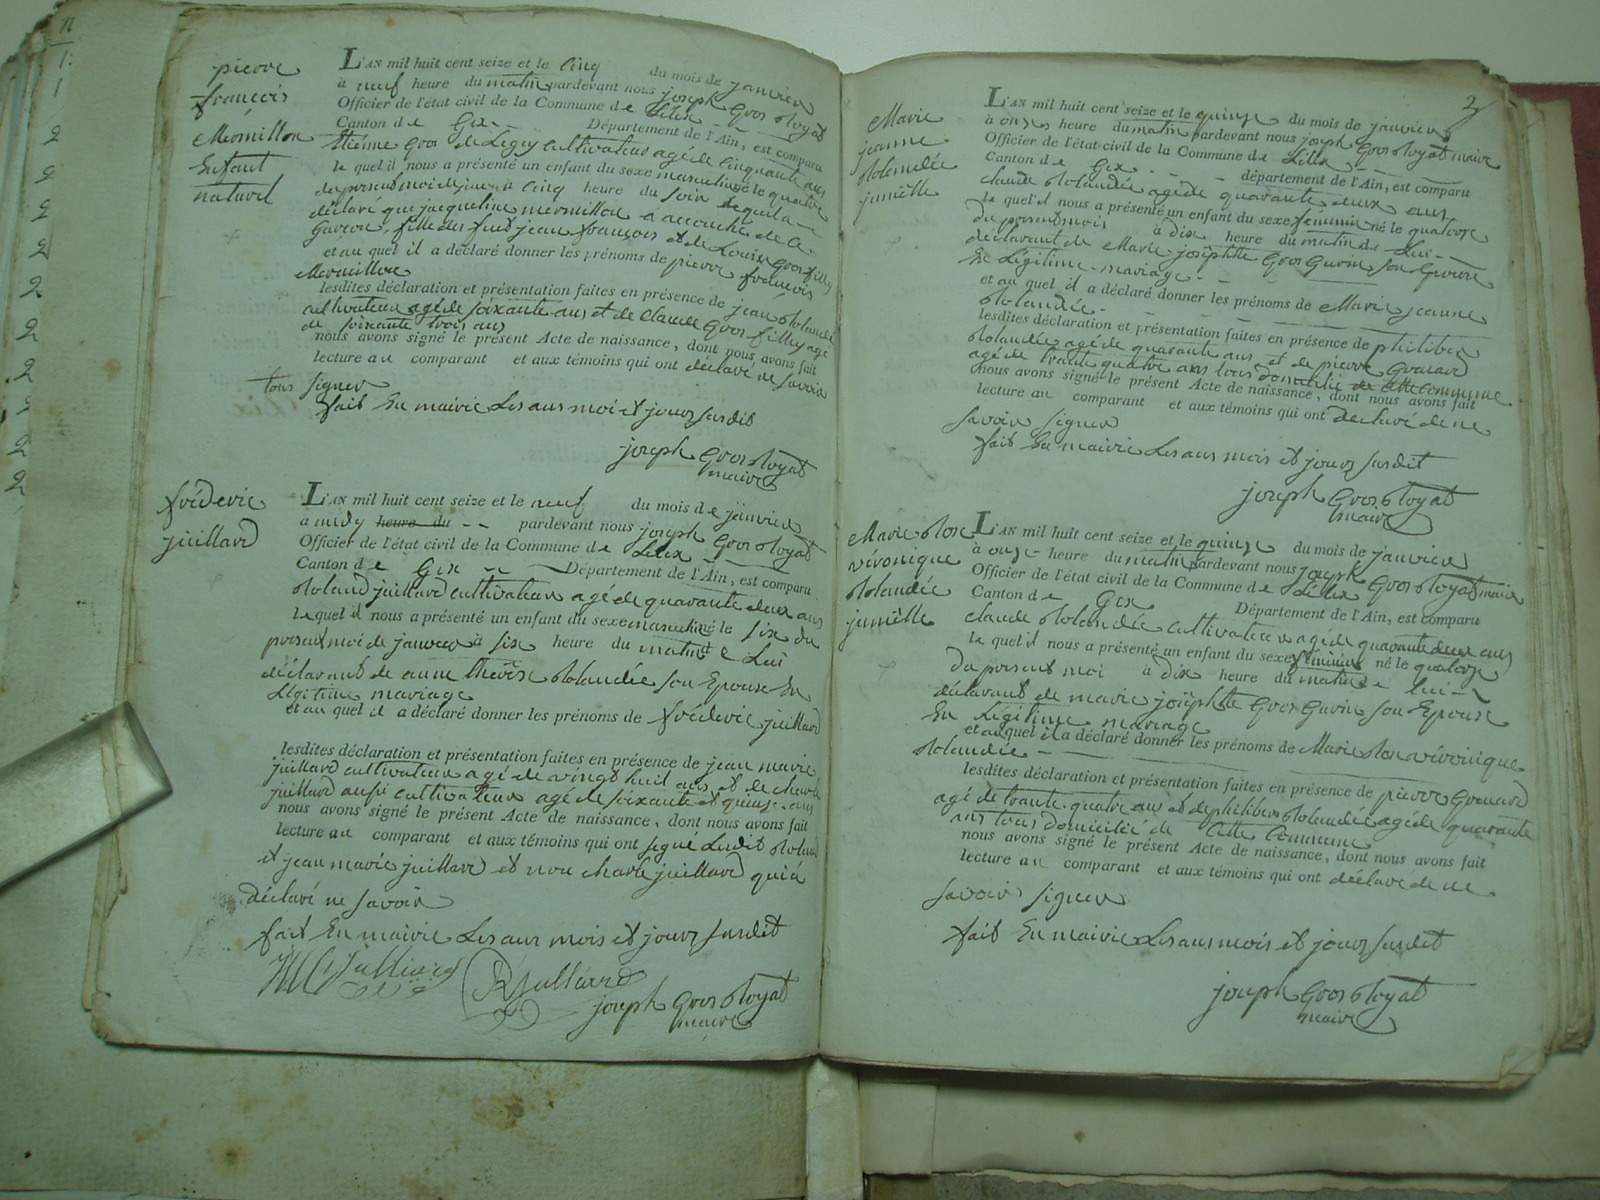 pierre
françois
Mermillon
Enfant
naturel
L'AN mil huit cent seize et le Cinq du mois de janvier
à neuf heure du matin pardevant nous joseph Gros Royat
Officier de l'état civil de la Commune de Lélex
Canton de Gex Département de l'Ain, est comparu
Etienne Gros de Legiy cultivateur agé de Cinquante ans
le quel il nous a présenté un enfant du sexe masculin né le quatre
du present moi de janvier à Cinq heure du soir
déclaré que jacqueline mermillon a accouché de Ce
Garcon, fille de feut jean françois et de Louise Gros filley
et au quel il a déclaré donner les prénoms de pierre françois
Mermillon
lesdites déclaration et présentation faites en présence de jean Rolandée
cultivateur agé de soixante ans et de Claude Gros filley agé
de soixante trois ans
nous avons signé le présent Acte de naissance, dont nous avons fait
lecture au comparant et aux témoins qui ont déclaré ne savoir
tous signer
fait En mairie Les ans moi et jours susdit
joseph Gros Royat
maire
fréderic
juillard
L'AN mil huit cent seize et le neuf du mois de janvier
à midy heure du pardevant nous joseph Gros Royat
Officier de l'état civil de la Commune de Lélex
Canton de Gex Département de l'Ain, est comparu
Roland juillard cultivateur agé de quarante deux ans
Le quel il nous a présenté un enfant du sexe masculin né le six du
present moi de janvier à six heure du matin de Lui
déclarant de anne thérèse Rolandée son Epouse En
Légitime mariage
et au quel il a déclaré donner les prénoms de fréderic juillard
lesdites déclaration et présentation faites en présence de jean marie
juillard cultivateur agé de vingt huit ans et de charle
juillard aussi cultivateur agé de soixante et quinze ans
nous avons signé le présent Acte de naissance, dont nous avons fait
lecture au comparant et aux témoins qui ont signé Ledit Roland
et jean marie juillard et non charle juillard qui a
déclaré ne savoir
fait En mairie Les ans mois et jours susdit
JM Juilliard R Juilliard
joseph Gros Royat
maire
2
Marie
jeanne
Rolandée
jumèlle
L'AN mil huit cent seize et le quinze du mois de janvier
à onze heure du matin pardevant nous joseph Gros Royat maire
Officier de l'état civil de la Commune de Lélex
Canton de Gex département de l'Ain, est comparu
Claude Rolandée agé de quarante deux ans
le quel il nous a présenté un enfant du sexe féminin né le quatorze
du present mois à dix heure du matin de Lui
déclarant de Marie josephtte Gros Gurin son Epouse
En Légitime mariage
et au quel il a déclaré donner les prénoms de Marie jeanne
Rolandée
lesdites déclaration et présentation faites en présence de philiber
Rolandée agé de quarante ans et de pierre Grenard
agé de trante quatre ans tous domicilié de cette Commune
nous avons signé le présent Acte de naissance, dont nous avons fait
lecture au comparant et aux témoins qui ont déclaré de ne
savoir signer
fait En mairie Les ans mois et jours susdit
joseph Gros Royat
maire
Marie Rose
véronique
Rolandée
jumèlle
L'AN mil huit cent seize et le quinze du mois de janvier
à onze heure du matin pardevant nous joseph Gros Royat maire
Officier de l'état civil de la Commune de Lélex
Canton de Gex Département de l'Ain, est comparu
Claude Rolandée cultivateur agé de quarante deux ans
le quel il nous a présenté un enfant du sexe féminin né le quatorze
du present moi à dix heure du matin de lui
déclarant de marie josephtte Gros Gurin son Epouse
En Légitime mariage
et au quel il a déclaré donner les prénoms de Marie Rose véronique
Rolandée
lesdites déclaration et présentation faites en présence de pierre Grenard
agé de trante quatre ans et de philiber Rolandée agé de quarante
ans tous domicilié de Cette Commune
nous avons signé le présent Acte de naissance, dont nous avons fait
lecture au comparant et aux témoins qui ont déclaré de ne
savoir signer
fait En mairie Les ans mois et jours susdit
joseph Gros Royat
maire